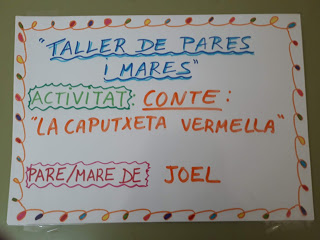 "TALLER DE PARES
I MARES"
ACTIVITAT: CONTE:
"LA CAPUTXETA VERMELLA"
PARE/MARE DE JOEL